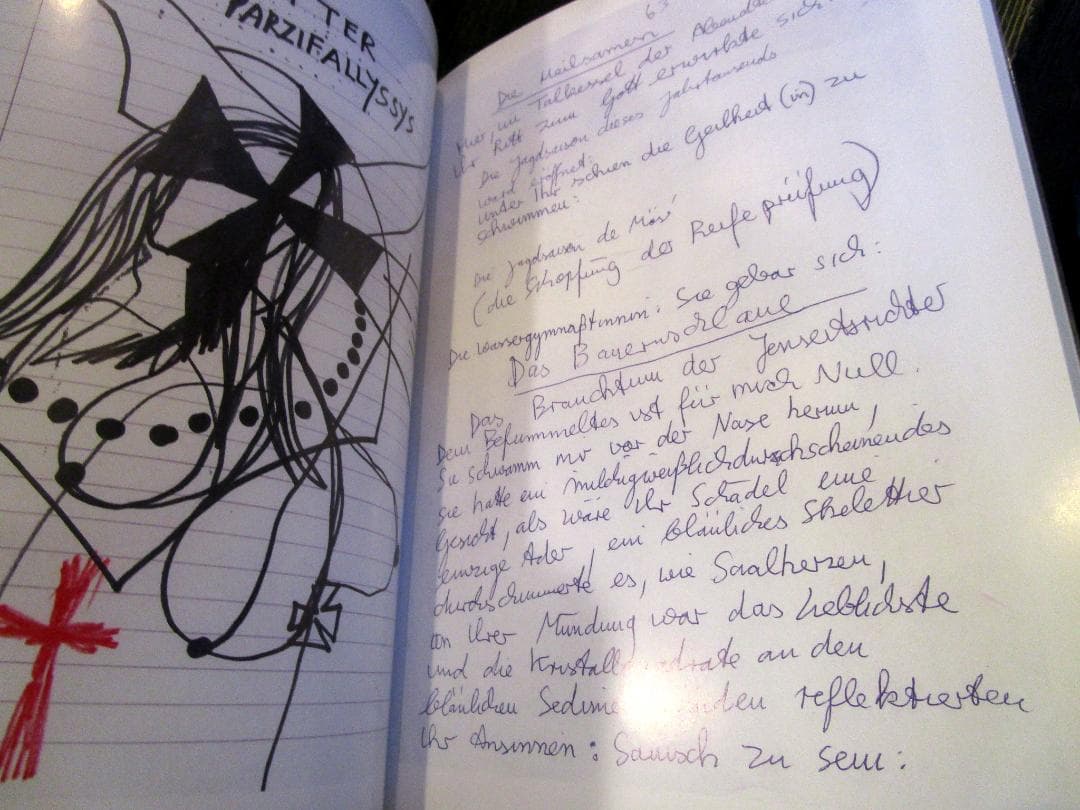 TTER
PARZIFALLYSSYS
63
Die Heilsamern
Hier, im Talkessel der
Ihr Ritt zum Gott erwirbte sich:
Die Jagdsaison dieses Jahrtausends
ward eröffnet:
unter Ihr schien die Geilheit (in) zu
schwimmen:
Die Jagdsaison de Mör'
(die Schöpfung der Reifeprüfung)
Die Wassergymnastinnin: Sie gebar sich:
Das Bayernschlaue
Das Brauchtum der Jenseitsrichter
Dein Befummeltes ist für mich Null.
Sie schwamm mir vor der Nase herum,
sie hatte ein milchigweißlichdurchscheinendes
Gesicht, als wäre Ihr Schädel eine
einzige Ader, ein bläuliches Skelettier
durchschimmerte es, wie Saalherzen,
an Ihrer Mündung war das Lieblichste
und die an den
bläulichen reflektierten
Ihr Ansinnen: zu sein: